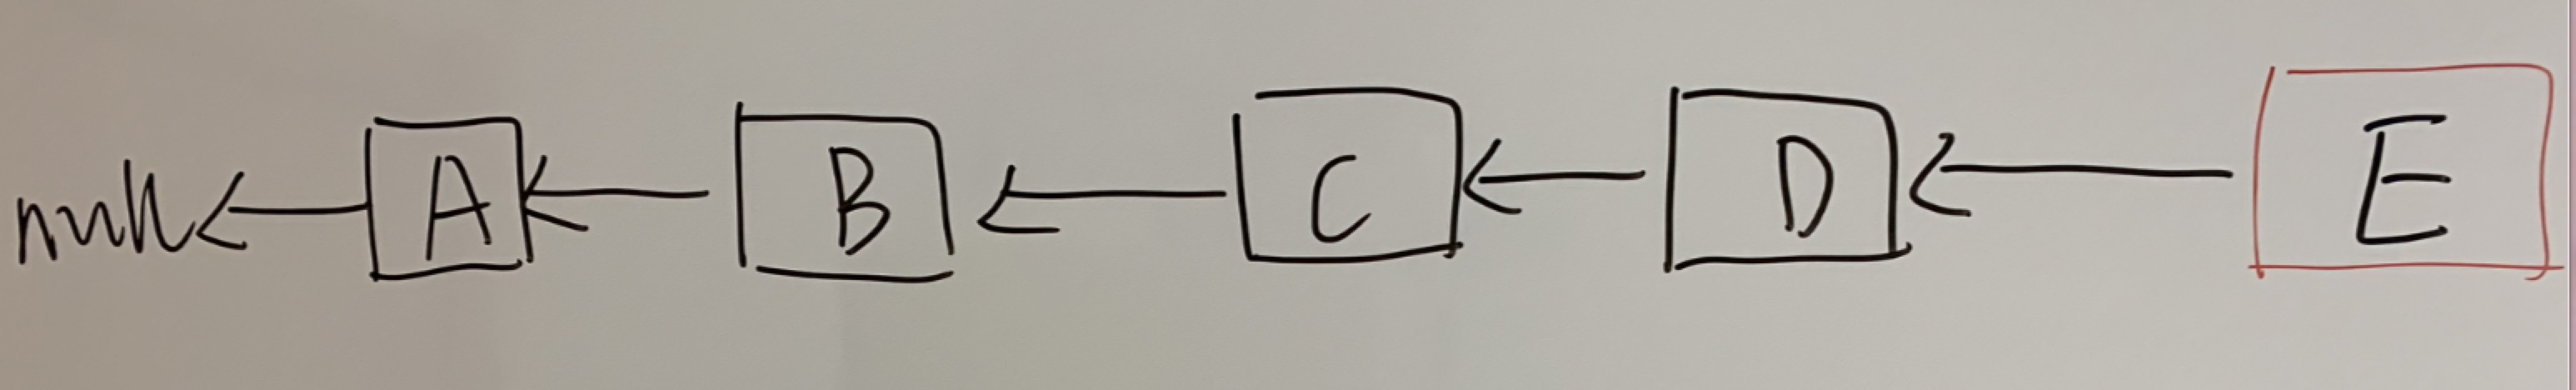 null A B C D E